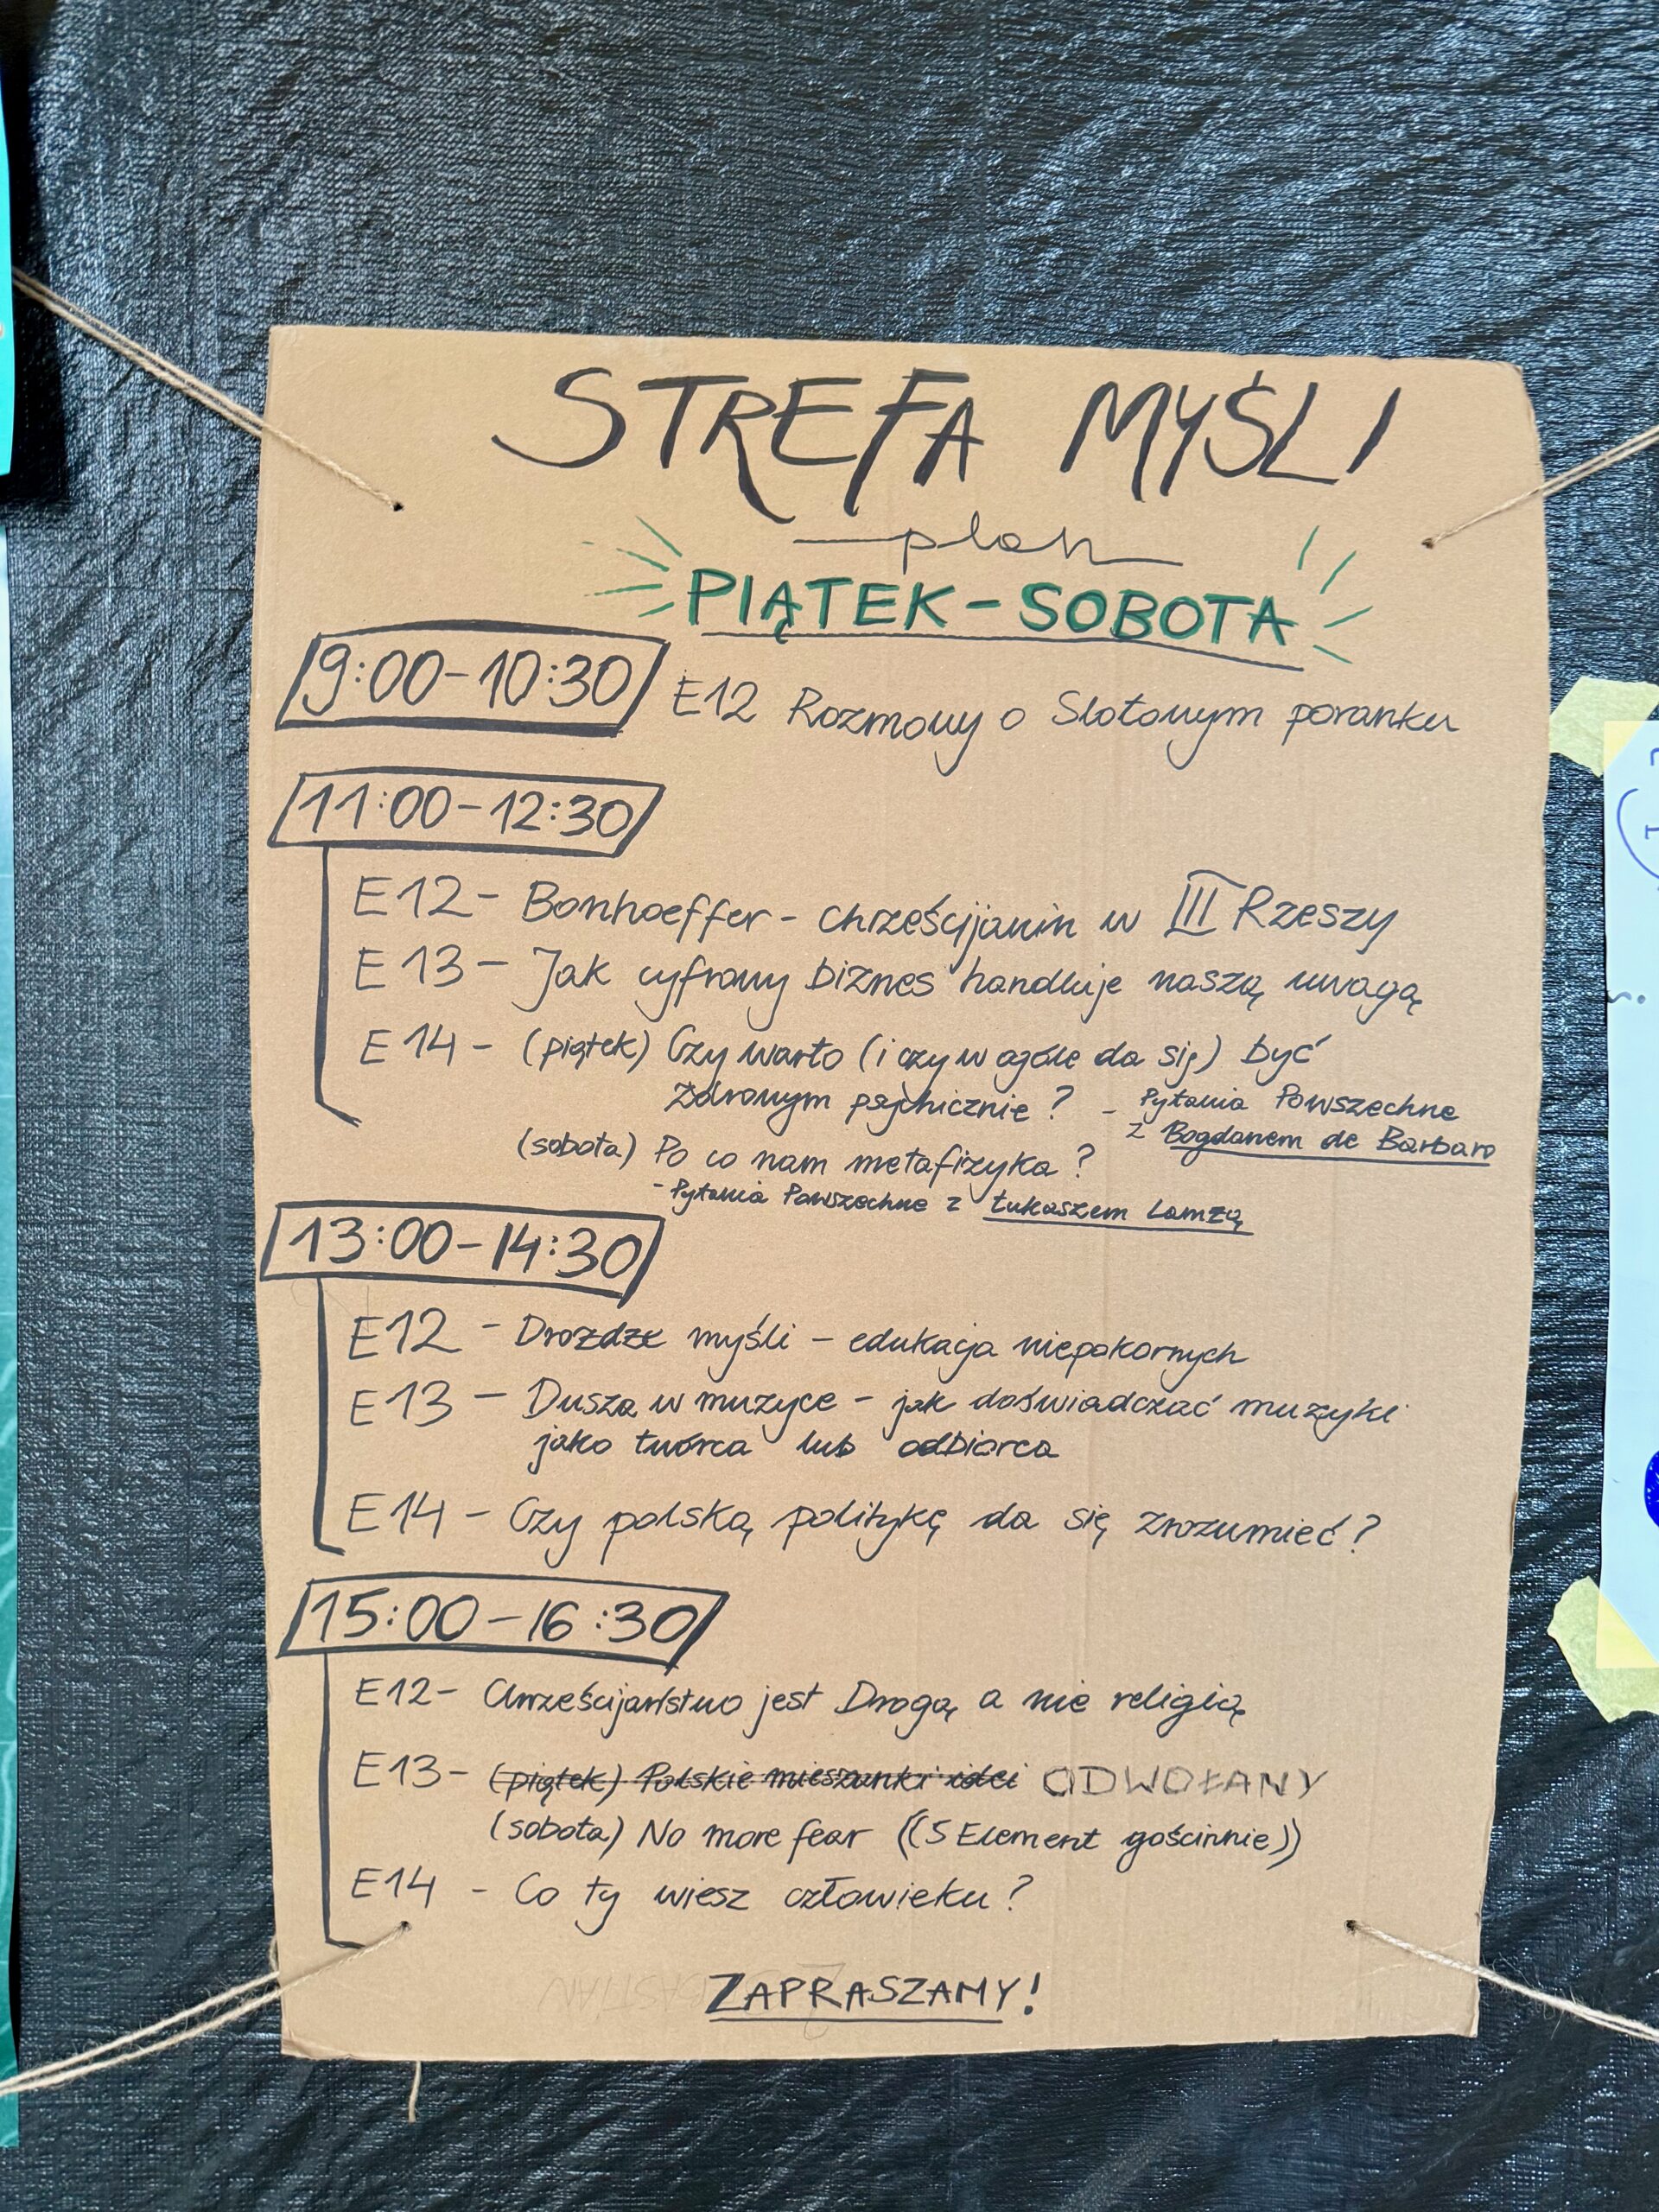 STREFA MYŚLI
plan
PIĄTEK-SOBOTA
9:00-10:30 E12 Rozmowy o Slotowym poranku
11:00-12:30
E12- Bonhoeffer- chrześcijanin w III Rzeszy
E13- Jak cyfrowy biznes handluje naszą uwagą
E14- (piątek) Czy warto (i czy w ogóle da się) być
zdrowym psychicznie? - Pytania Powszechne
z Bogdanem de Barbaro
(sobota) Po co nam metafizyka?
- Pytania Powszechne z Łukaszem Lamżą
13:00-14:30
E12 - Drożdże myśli - edukacja niepokornych
E13 - Dusza w muzyce - jak doświadczać muzyki
jako twórca lub odbiorca
E14- Czy polską politykę da się zrozumieć?
15:00-16:30
E12- Chrześcijaństwo jest Drogą a nie religią
E13- (piątek) Polskie mieszanki idei ODWOŁANY
(sobota) No more fear ((5 Element gościnnie))
E14 - Co ty wiesz człowieku?
ZAPRASZAMY!